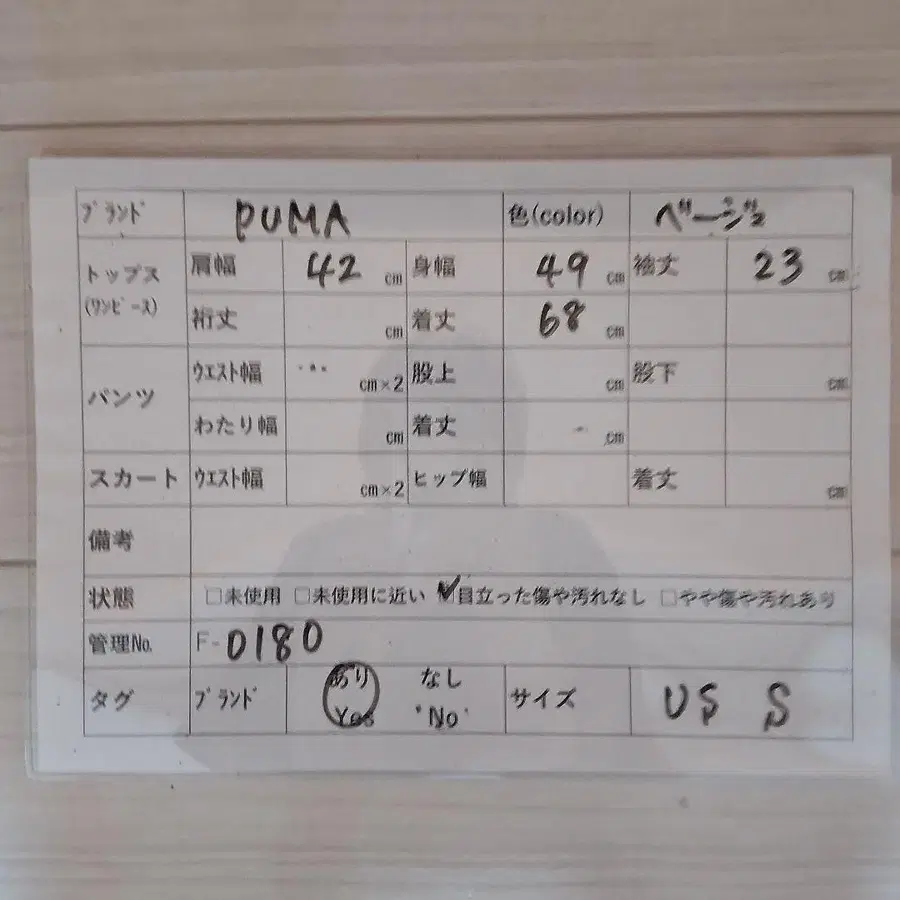 ブランド PUMA 色(color) ベージュ
トップス 肩幅 42 cm 身幅 49 cm 袖丈 23 cm
(ワンピース) 裄丈 cm 着丈 68 cm
パンツ ウエスト幅 cm×2 股上 cm 股下 cm
わたり幅 cm 着丈 cm
スカート ウエスト幅 cm×2 ヒップ幅 着丈 cm
備考
状態 □未使用 □未使用に近い ☑目立った傷や汚れなし □やや傷や汚れあり
管理No. F-0180
タグ ブランド あり Yes なし No サイズ US S